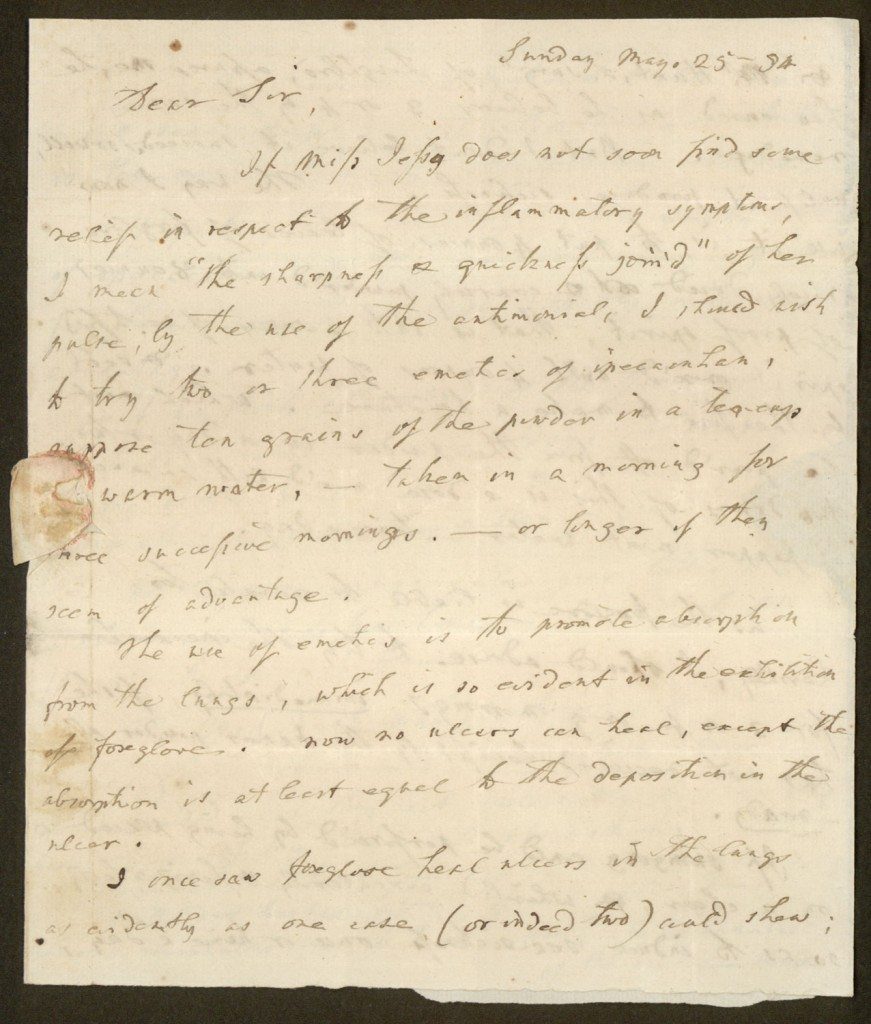 Sunday May. 25 - 94
Dear Sir,
If Miſs Jeſsy does not soon find some
relief in respect to the inflammatory symptoms,
I mean "the sharpneſs & quickneſs join'd" of her
pulse, by the use of the antimonial, I should wish
to try two or three emetics of ipecacuhan,
suppose ten grains of the powder in a tea-cup
warm water, — taken in a morning for
three succeſsive mornings. — or longer if they
seem of advantage.
The use of emetics is to promote absorption
from the lungs, which is so evident in the exhibition
of foxglove. now no ulcers can heal, except the
absorption is at least equal to the deposition in the
ulcer.
I once saw foxglove heal ulcers in the lungs
as evidently as one case (or indeed two) could shew;